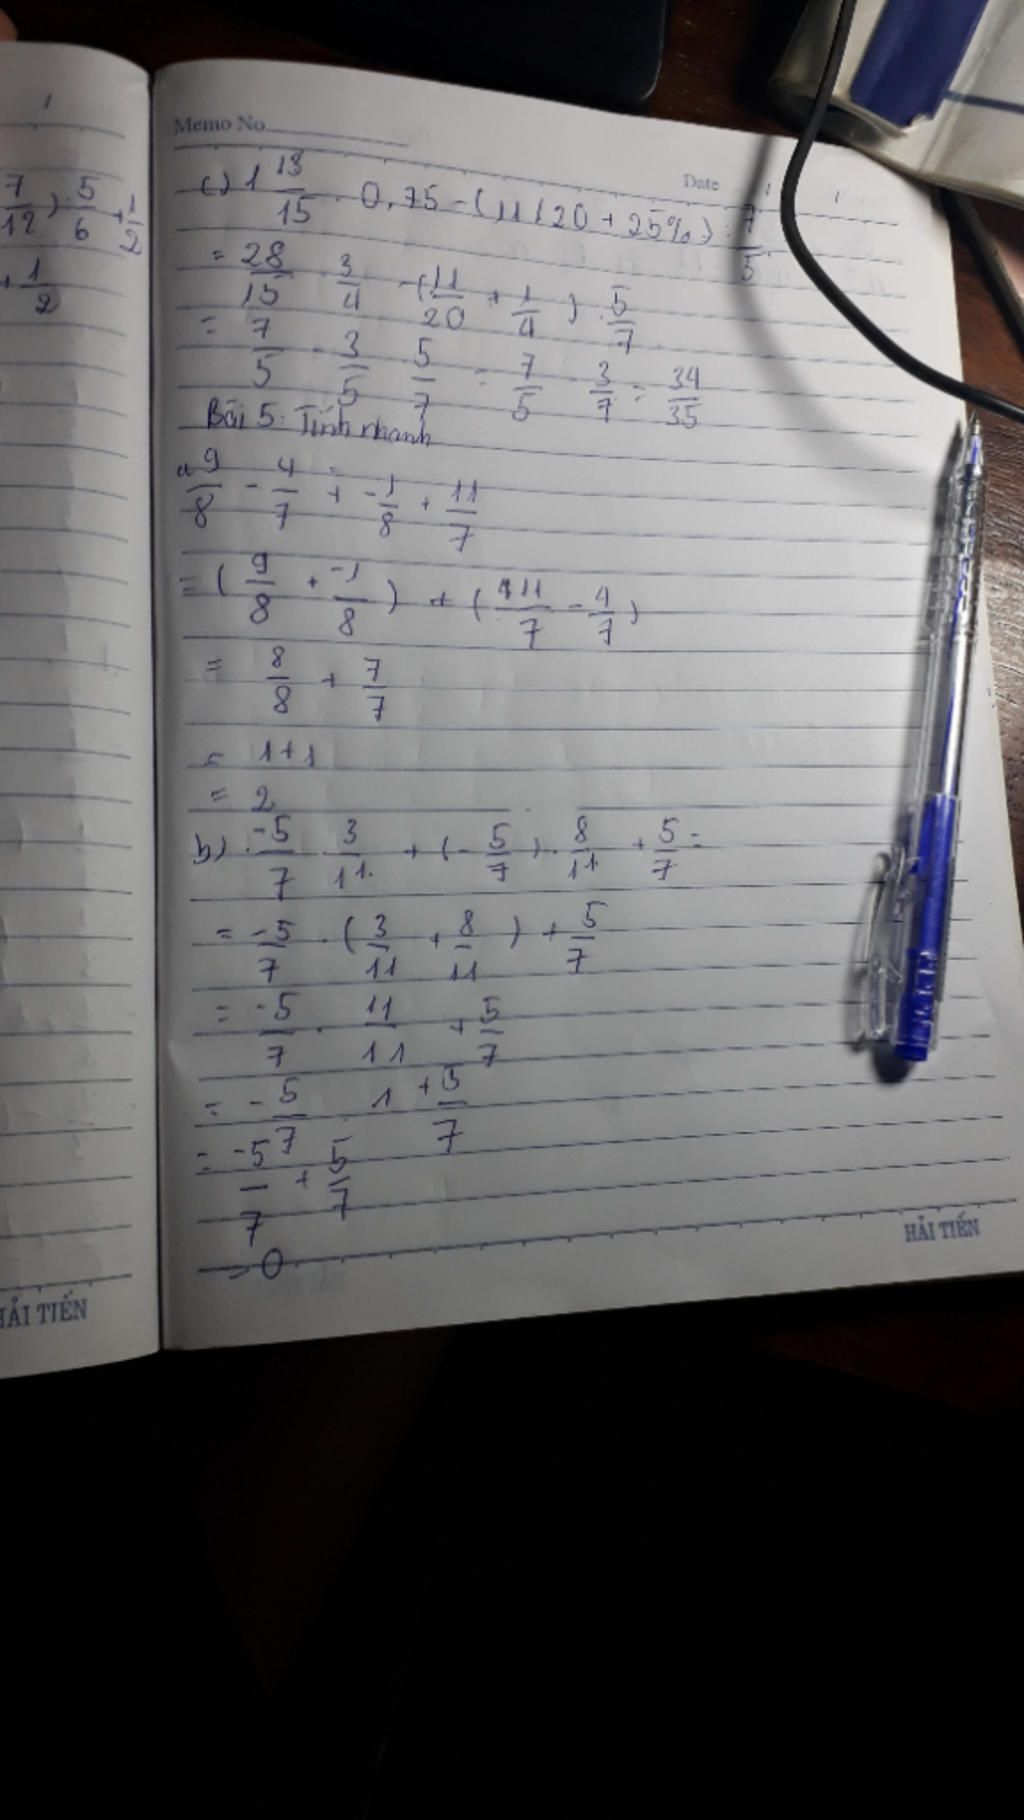 7/12) . 5/6 + 1/2
+ 1/2
HẢI TIẾN
Memo No.
Date
c) 1 13/15 . 0,75 - (11/20 + 25%) : 7/5
= 28/15 . 3/4 - (11/20 + 1/4) . 5/7
= 7/5 - 3/5 . 5/7 = 7/5 - 3/7 = 34/35
Bài 5: Tính nhanh
a 9/8 - 4/7 + -1/8 + 11/7
= (9/8 + -1/8) + (11/7 - 4/7)
= 8/8 + 7/7
= 1+1
= 2
b) -5/7 . 3/11 + (-5/7) . 8/11 + 5/7 =
= -5/7 . (3/11 + 8/11) + 5/7
= -5/7 . 11/11 + 5/7
= -5/7 . 1 + 5/7
= -5/7 + 5/7
= 0
HẢI TIẾN